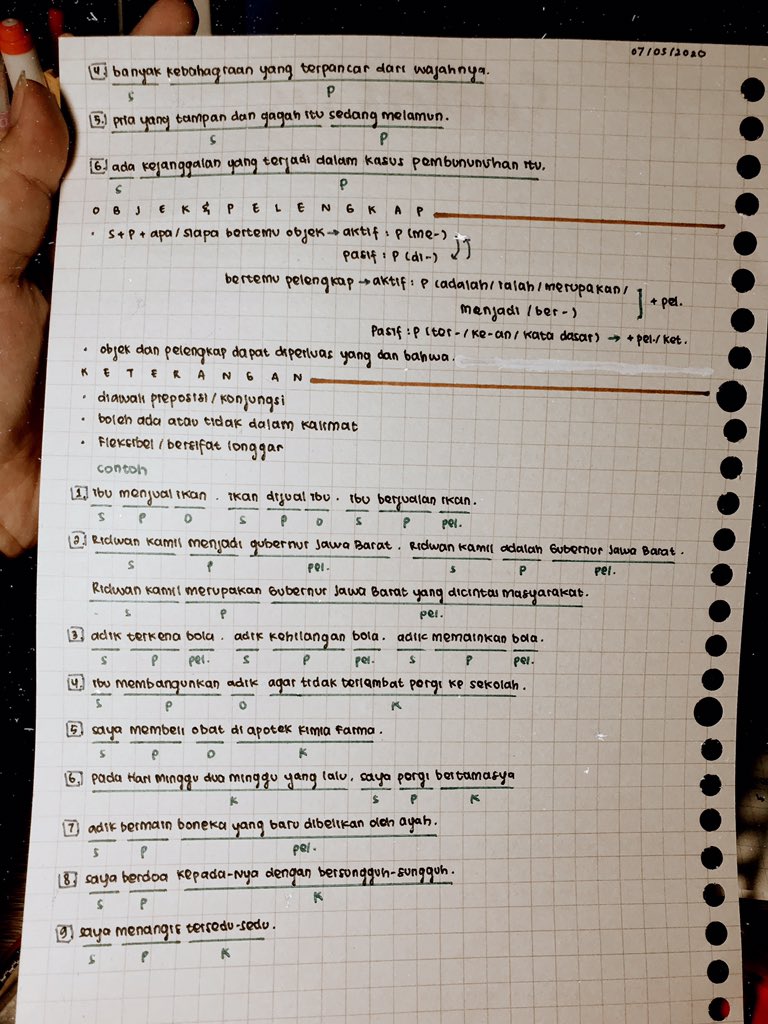 07/05/2020
4. banyak kebahagiaan yang terpancar dari wajahnya.
S P
5. pria yang tampan dan gagah itu sedang melamun.
S P
6. ada kejanggalan yang terjadi dalam kasus pembununuhan itu.
S P
OBJEK & PELENGKAP
• S+P + apa/siapa bertemu objek → aktif : P (me-)
pasif : P (di-)
bertemu pelengkap → aktif : P (adalah/ialah/merupakan/
menjadi/ber-) + pel.
Pasif : P (ter-/ke-an/kata dasar) → + pel./ket.
• objek dan pelengkap dapat diperluas yang dan bahwa.
KETERANGAN
• diawali preposisi/konjungsi
• boleh ada atau tidak dalam kalimat
• Fleksibel/bersifat longgar
contoh
1. Ibu menjual ikan. Ikan dijual ibu. Ibu berjualan ikan.
S P O S P O S P pel.
2. Ridwan Kamil menjadi gubernur Jawa Barat. Ridwan Kamil adalah Gubernur Jawa Barat.
S P pel. S P pel.
Ridwan Kamil merupakan Gubernur Jawa Barat yang dicintai masyarakat.
S P pel.
3. adik terkena bola. adik kehilangan bola. adik memainkan bola.
S P pel. S P pel. S P pel.
4. Ibu membangunkan adik agar tidak terlambat pergi ke sekolah.
S P O K
5. saya membeli obat di apotek Kimia Farma.
S P O K
6. Pada Hari Minggu dua minggu yang lalu, saya pergi bertamasya
K S P K
7. adik bermain boneka yang baru dibelikan oleh ayah.
S P pel.
8. saya berdoa kepada-Nya dengan bersungguh-sungguh.
S P K
9. saya menangis tersedu-sedu.
S P K